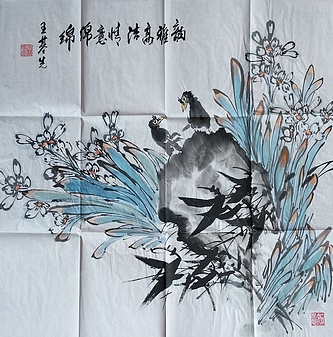 韵雅高洁情意绵绵
王 先